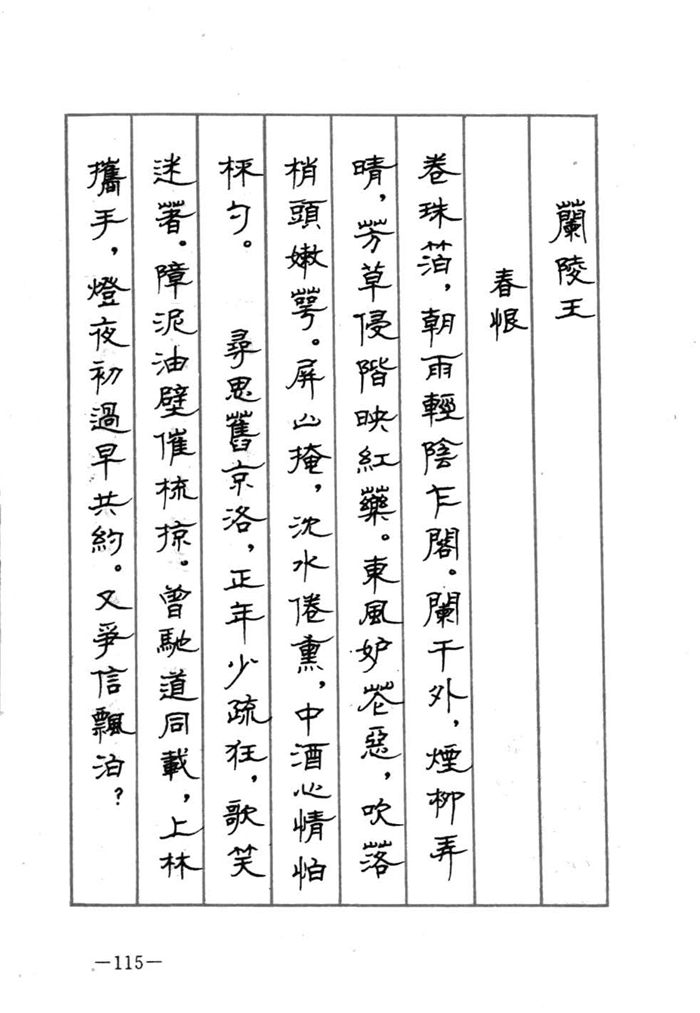 蘭陵王
春恨
卷珠箔，朝雨輕陰乍閣。闌干外，煙柳弄
晴，芳草侵階映紅藥。東風妒花惡，吹落
梢頭嫩萼。屏山掩，沈水倦熏，中酒心情怕
杯勺。　尋思舊京洛，正年少疏狂，歌笑
迷著。障泥油壁催梳掠。曾馳道同載，上林
攜手，燈夜初過早共約。又爭信飄泊？
—115—